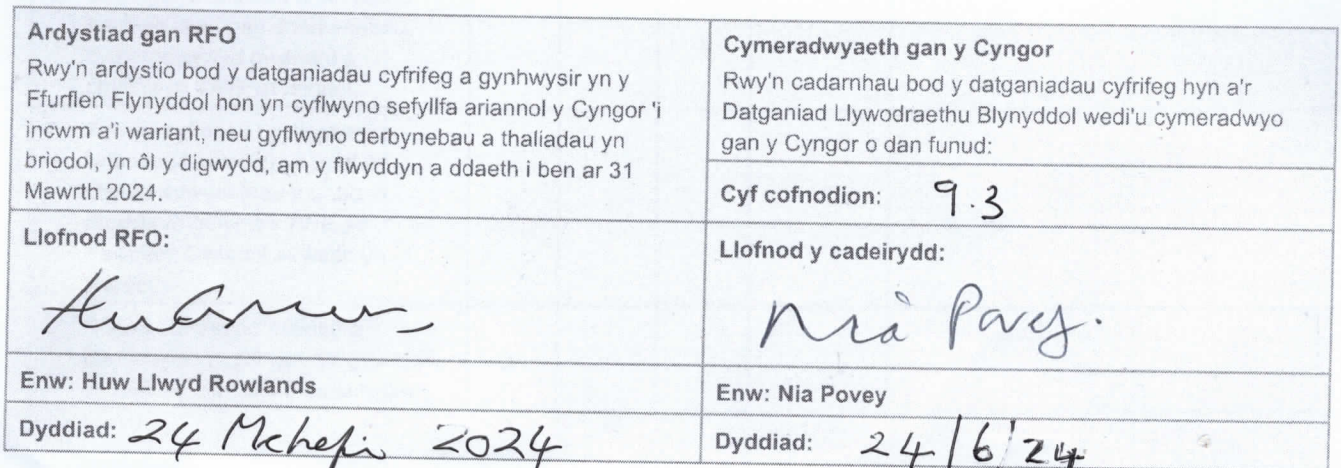 Ardystiad gan RFO
Rwy'n ardystio bod y datganiadau cyfrifeg a gynhwysir yn y
Ffurflen Flynyddol hon yn cyflwyno sefyllfa ariannol y Cyngor 'i
incwm a'i wariant, neu gyflwyno derbynebau a thaliadau yn
briodol, yn ôl y digwydd, am y flwyddyn a ddaeth i ben ar 31
Mawrth 2024.
Llofnod RFO:
Enw: Huw Llwyd Rowlands
Dyddiad: 24 Mehefin 2024
Cymeradwyaeth gan y Cyngor
Rwy'n cadarnhau bod y datganiadau cyfrifeg hyn a'r
Datganiad Llywodraethu Blynyddol wedi'u cymeradwyo
gan y Cyngor o dan funud:
Cyf cofnodion: 9.3
Llofnod y cadeirydd:
Nia Povey.
Enw: Nia Povey
Dyddiad: 24/6/24